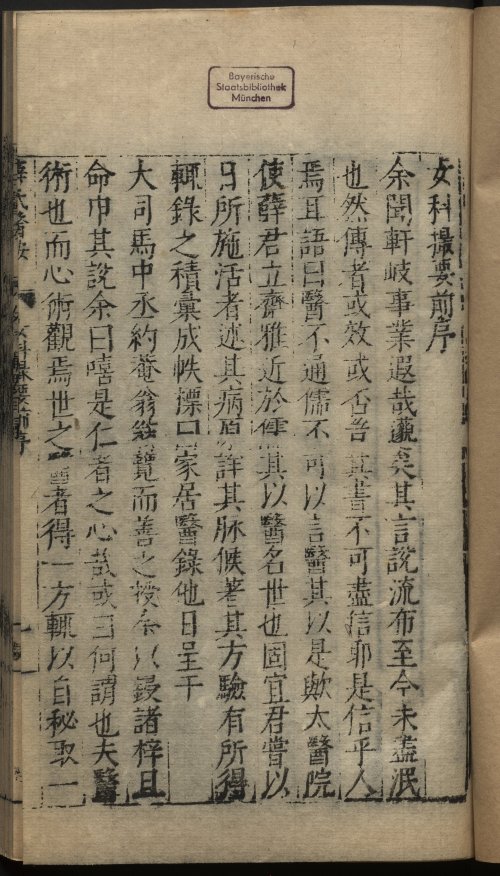 Bayerische
Staatsbibliothek
München
女科撮要前序
余聞軒岐事業遐哉藐矣其言說流布至今未盡泯
也然傳者或效或否吾其書不可盡信耶是信乎人
焉耳語曰醫不通儒不可以言醫其以是歟太醫院
使薛君立齋雅近於儒其以醫名世也固宜君嘗以
日所施活者述其病原詳其脉候著其方驗有所得
輒錄之積彙成帙摽曰家居醫錄他日呈于
大司馬中丞約菴翁翁覽而善之授余以鋟諸梓且
命申其說余曰嘻是仁者之心哉或曰何謂也夫醫
術也而心術觀焉世之醫者得一方輒以自秘取一
薛氏醫按
女科撮要前序
一